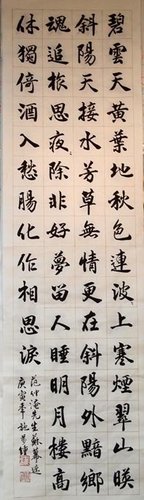 碧雲天黃葉地秋色連波上寒煙翠山暎
斜陽天接水芳草無情更在斜陽外黯鄉
魂追旅思夜除非好夢留人睡明月樓高
休獨倚酒入愁腸化作相思淚
范仲淹先生蘇幕遮
庚寅年